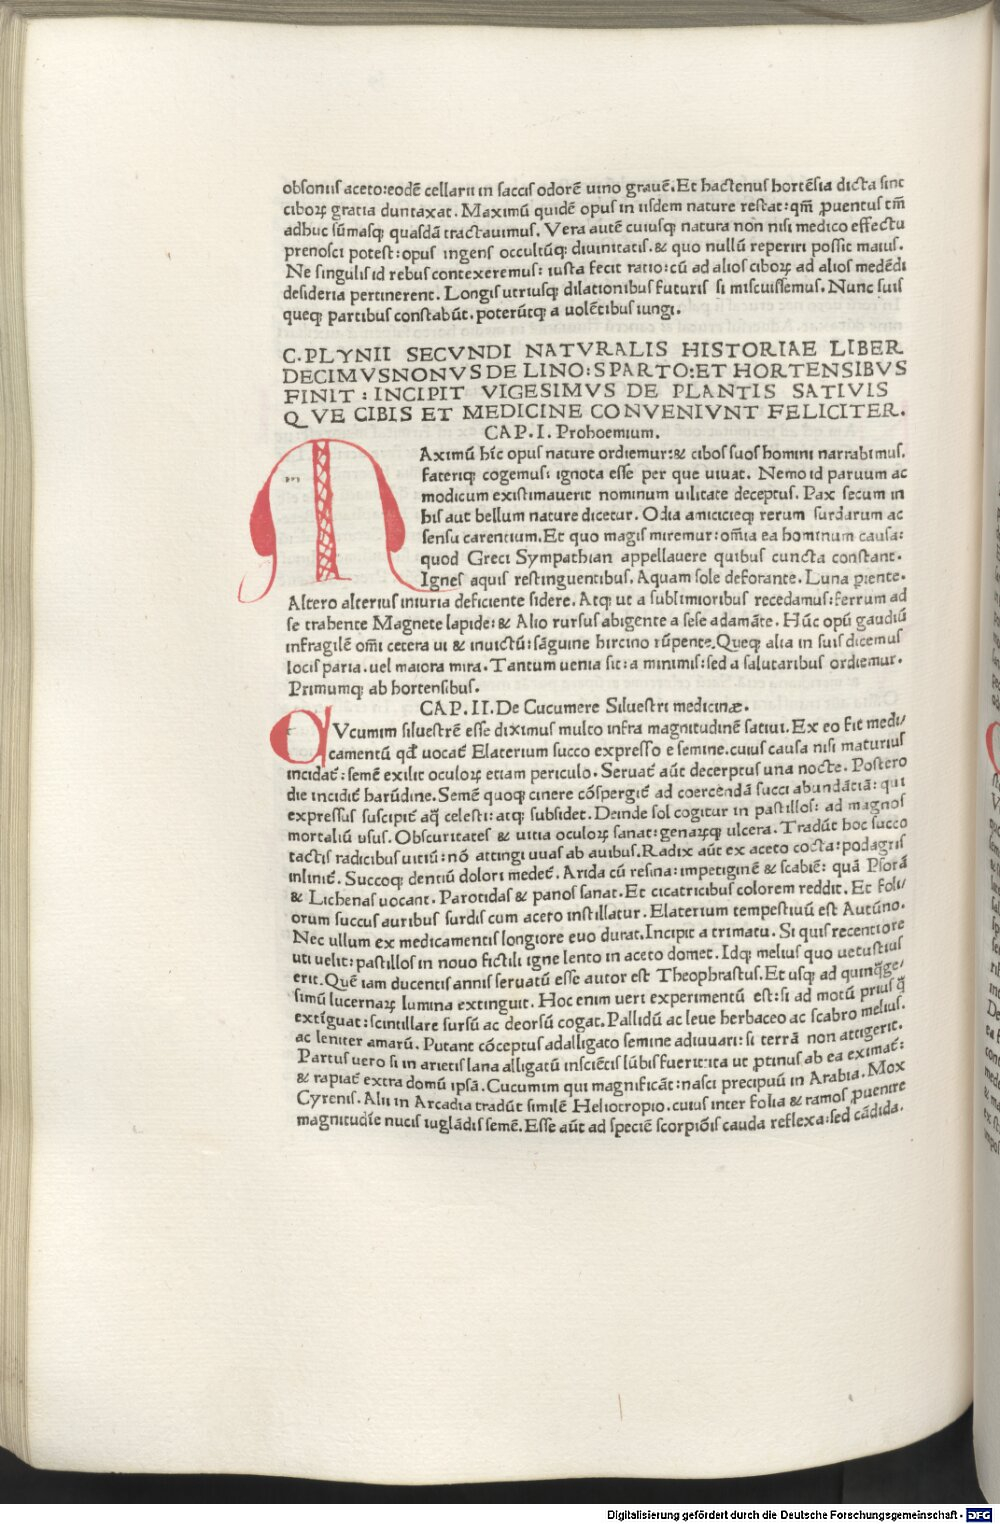 obsoniis aceto:eodē cellarii in saccis odorē uino grauē.Et hactenus hortēsia dicta sint
ciboꝝ gratia duntaxat. Maximū quidē opus in iisdem nature restat:qm̄ ꝓuentus tm̄
adhuc sūmasqꝫ quasdā tractauimus. Vera autē cuiusqꝫ natura non nisi medico effectu
prenosci potest:opus ingens occultūqꝫ diuinitatis.& quo nullū reperiri possit maius.
Ne singulis id rebus contexeremus: iusta fecit ratio:cū ad alios ciboꝝ ad alios medēdi
desideria pertinerent. Longis utriusqꝫ dilationibus futuris si miscuissemus. Nunc suis
queqꝫ partibus constabūt. poterūtqꝫ a uolētibus iungi.
C. PLYNII SECVNDI NATVRALIS HISTORIAE LIBER
DECIMVSNONVS DE LINO: SPARTO: ET HORTENSIBVS
FINIT : INCIPIT VIGESIMVS DE PLANTIS SATIVIS
QVE CIBIS ET MEDICINE CONVENIVNT FELICITER.
CAP. I. Prohoemium.
MAximū hīc opus nature ordiemur:& cibos suos homini narrabimus.
fateriqꝫ cogemus: ignota esse per que uiuat. Nemo id paruum ac
modicum existimauerit nominum uilitate deceptus. Pax secum in
his aut bellum nature dicetur. Odia amicicieqꝫ rerum surdarum ac
sensu carentium. Et quo magis miremur:om̄ia ea hominum causa:
quod Greci Sympathian appellauere quibus cuncta constant.
Ignes aquis restinguentibus. Aquam sole deforante. Luna piente.
Altero alterius iniuria deficiente sidere. Atqꝫ ut a sublimioribus recedamus:ferrum ad
se trahente Magnete lapide:& Alio rursus abigente a sese adamāte. Hūc opū gaudiū
infragilē om̄i cetera ui & inuictū:sāguine hircino rūpente. Queqꝫ alia in suis dicemus
locis paria. uel maiora mira. Tantum uenia sit:a minimis:sed a salutaribus ordiemur.
Primumqꝫ ab hortensibus.
CAP. II. De Cucumere Siluestri medicinæ.
CVcumim siluestrē esse diximus multo infra magnitudinē satiui. Ex eo fit medi/
camentū qđ uocat̄ Elaterium succo expresso e semine. cuius causa nisi maturius
incidat̄: semē exilit oculoꝝ etiam periculo. Seruat̄ aūt decerptus una nocte. Postero
die incidit̄ harūdine. Semē quoqꝫ cinere cōspergit̄ ad coercendā succi abundātiā: qui
expressus suscipit̄ aq̄ celesti: atqꝫ subsidet. Deinde sol cogitur in pastillos: ad magnos
mortaliū usus. Obscuritates & uitia oculoꝝ sanat: genaꝝqꝫ ulcera. Tradūt hoc succo
tactis radicibus uitiū: nō attingi uuas ab auibus. Radix aūt ex aceto cocta: podagris
inlinit̄. Succoqꝫ dentiū dolori medet̄. Arida cū resina: impetiginē & scabiē: quā Psorā
& Lichenas uocant. Parotidas & panos sanat. Et cicatricibus colorem reddit. Et foli/
orum succus auribus surdis cum aceto instillatur. Elaterium tempestiuū est Autūno.
Nec ullum ex medicamentis longiore euo durat. Incipit a trimatu. Si quis recentiore
uti uelit: pastillos in nouo fictili igne lento in aceto domet. Idqꝫ melius quo uetustius
erit. Quē iam ducentis annis seruatū esse autor est Theophrastus. Et usqꝫ ad quinq̄ge/
simū lucernaꝝ lumina extinguit. Hoc enim ueri experimentū est: si ad motū prius q̄
extīguat: scintillare sursū ac deorsū cogat. Pallidū ac leue herbaceo ac scabro melius.
ac leniter amarū. Putant cōceptus adalligato semine adiuuari: si terrā non attigerit.
Partus uero si in arietis lana alligatū insciētis lūbis fuerit: ita ut ꝓtinus ab ea eximat̄:
& rapiat̄ extra domū ipsā. Cucumim qui magnificāt: nasci precipuū in Arabia. Mox
Cyrenis. Alii in Arcadia tradūt similē Heliotropio. cuius inter folia & ramos ꝓuenire
magnitudīe nucis iuglādis semē. Esse aūt ad speciē scorpiōis cauda reflexa: sed cādida.
Digitalisierung gefördert durch die Deutsche Forschungsgemeinschaft - DFG